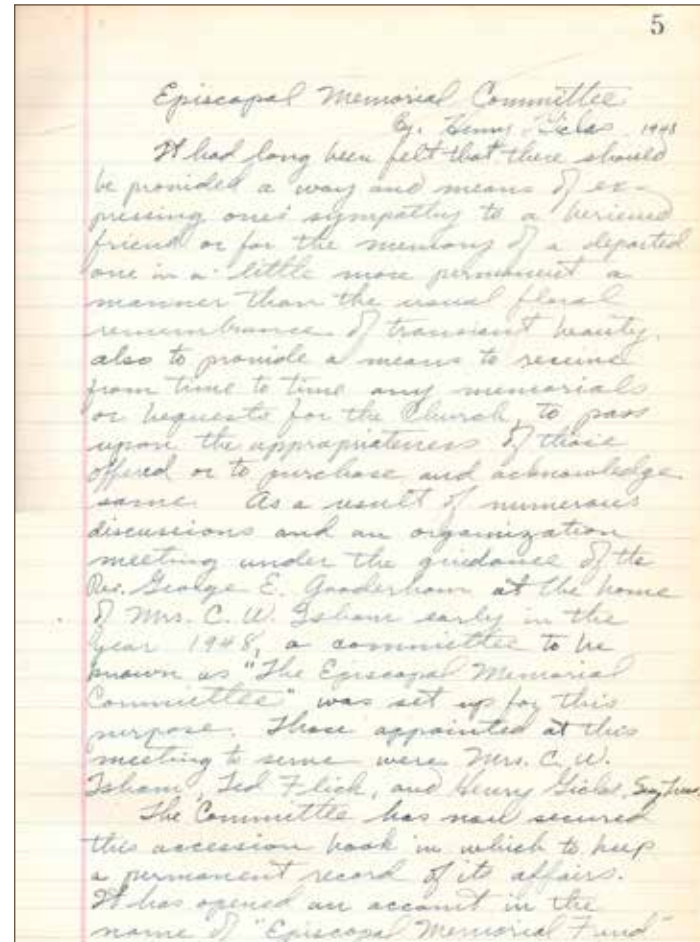 5
Episcopal Memorial Committee
By. Henry Giclas 1948
It had long been felt that there should
be provided a way and means of ex-
pressing ones' sympathy to a beriened
friend or for the memory of a departed
one in a little more permanent a
manner than the usual floral
remembrance of transient beauty,
also to provide a means to receive
from time to time any memorials
or bequests for the Church, to pass
upon the appropriateness of those
offered or to purchase and acknowledge
same. As a result of numerous
discussions and an organization
meeting under the guidance of the
Rev. George E. Gooderham at the home
of Mrs. C. W. Isham early in the
year 1948, a committee to be
known as "The Episcopal Memorial
Committee" was set up for this
purpose. Those appointed at this
meeting to serve were Mrs. C. W.
Isham, Ted Flick, and Henry Giclas, Secy Treas.
The Committee has now secured
this accession book in which to keep
a permanent record of its affairs.
It has opened an account in the
name of "Episcopal Memorial Fund"